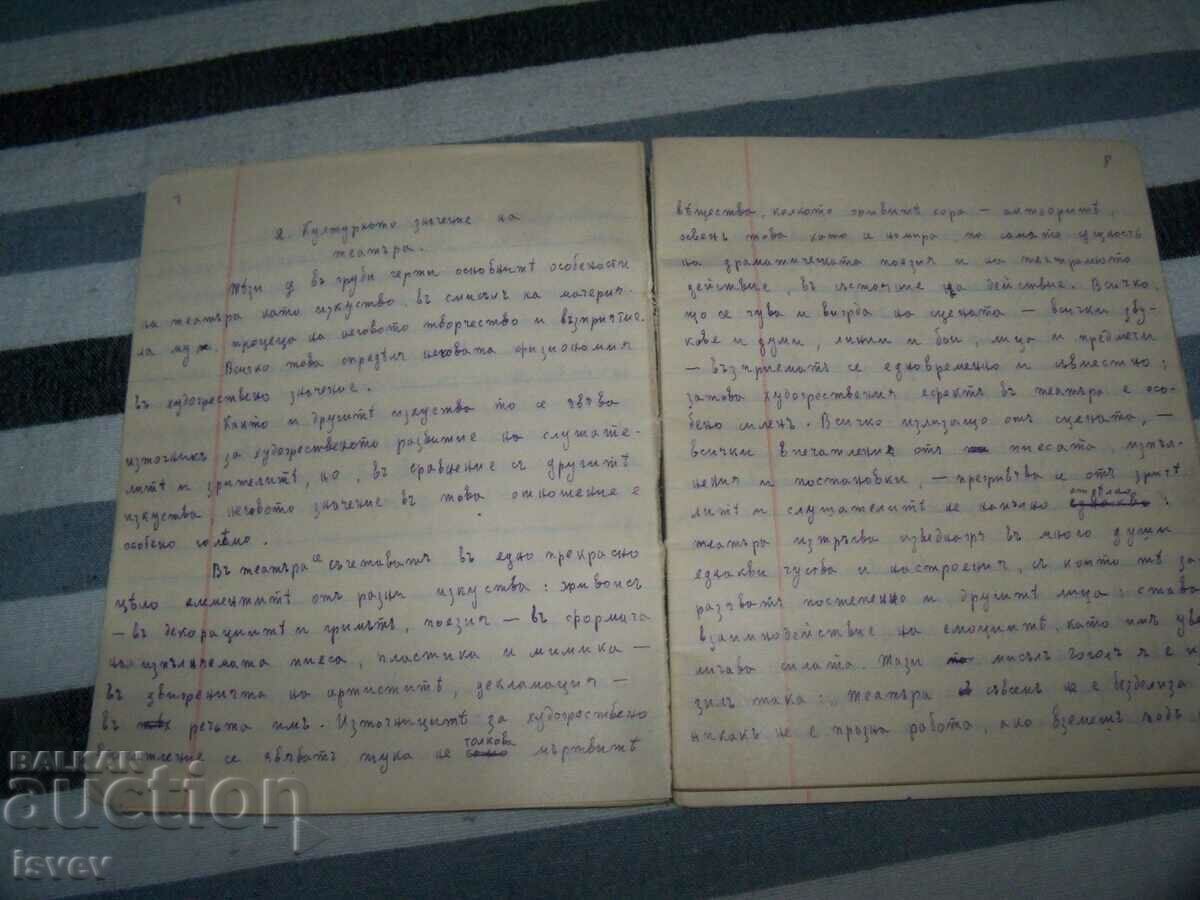 7
2. Културното значение на
театъра.
Тѣзи в груби черти основнитѣ особености
на театъра като изкуство въ смисълъ на материя-
ла му, процеца на неговото творчество и възприятие.
Всичко това опредѣля неговата физиономия
въ художествено значение.
Както и другитѣ изкуства то се явѣва
източникъ за художественото развитие на слушате-
литѣ и зрителитѣ, но, въ сравнение съ другитѣ
изкуства, неговото значение въ това отношение е
особено голѣмо.
Въ театъра се съчетаватъ въ едно прекрасно
цѣло елементитѣ отъ разни изкуства: живопись
— въ декорациитѣ и гримътъ, поезия — въ формата
на изпълняемата пиеса, пластика и мимика —
въ движенията на артиститѣ, декламация —
въ речьта имъ. Източницитѣ за художествено
се явѣватъ тука не толкова мъртвитѣ
8
вѣщества, колкото живитѣ хора — авторитѣ,
освенъ това като се намира, по самата сущность
на драматическата поезия и на театралното
действие, въ състояние на действие. Всичко,
що се чува и вижда на сцената — всички зву-
кове и думи, линии и бои, лица и предмети
— възприематъ се едновременно и съвместно;
затова художествения ефектъ въ театъра е осо-
бено силенъ. Всичко излизащо отъ сцената, —
всички впечатления отъ пиесата, изпъл-
нения и постановки, — преживѣва се отъ зрите
литѣ и слушателитѣ не напълно отдѣлно:
театъра изтръгва изведнажъ въ много души
еднакви чуства и настроения, съ които тѣ за
разяватъ постепенно и другитѣ лица; става
взаимнодействие на емоциитѣ, като имъ уве
личава силата. Тази мисъль Гоголъ я е и
зилъ така: „Театъра съвсемъ не е безделица
никакъ не е празна работа, ако вземемъ подъ
BALKAN
auction
isvev